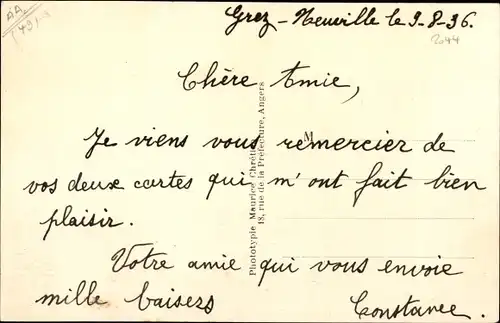 Grez-Neuville le 9-8-36.
2044
Chère Amie,
Je viens vous remercier de
vos deux cartes qui m'ont fait bien
plaisir.
Votre amie qui vous envoie
mille baisers
Constance.
Phototypie Maurice Chrétien
18, rue de la Préfecture, Angers
M